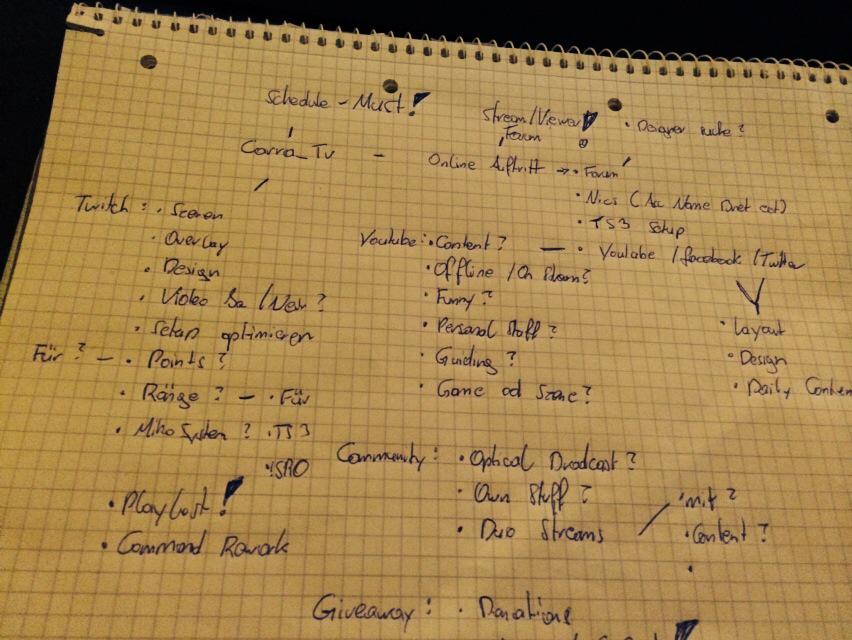 Schedule - Must!
Stream/Viewer!
Forum
• Designer suche?
Corra_Tv - Online Auftritt → • Forum
• Nics (Acc Name Dnet ect)
• TS3 Setup
• Youtube / facebook / Twitter
• Layout
• Design
• Daily Conten
Twitch: • Scenen
• Overlay
• Design
• Video
• Setup optimieren
Für? - • Points?
• Ränge? - • Für
• System? • TS3
• Playlist!
• Command Rework
Youtube: • Content? -
• Offline / On Stream?
• Funny?
• Personal Stuff?
• Guiding?
• Game od Szene?
Community: • Optical
• Own Stuff?
• Duo Streams
• mit?
• Content?
•
Giveaway: • Donations